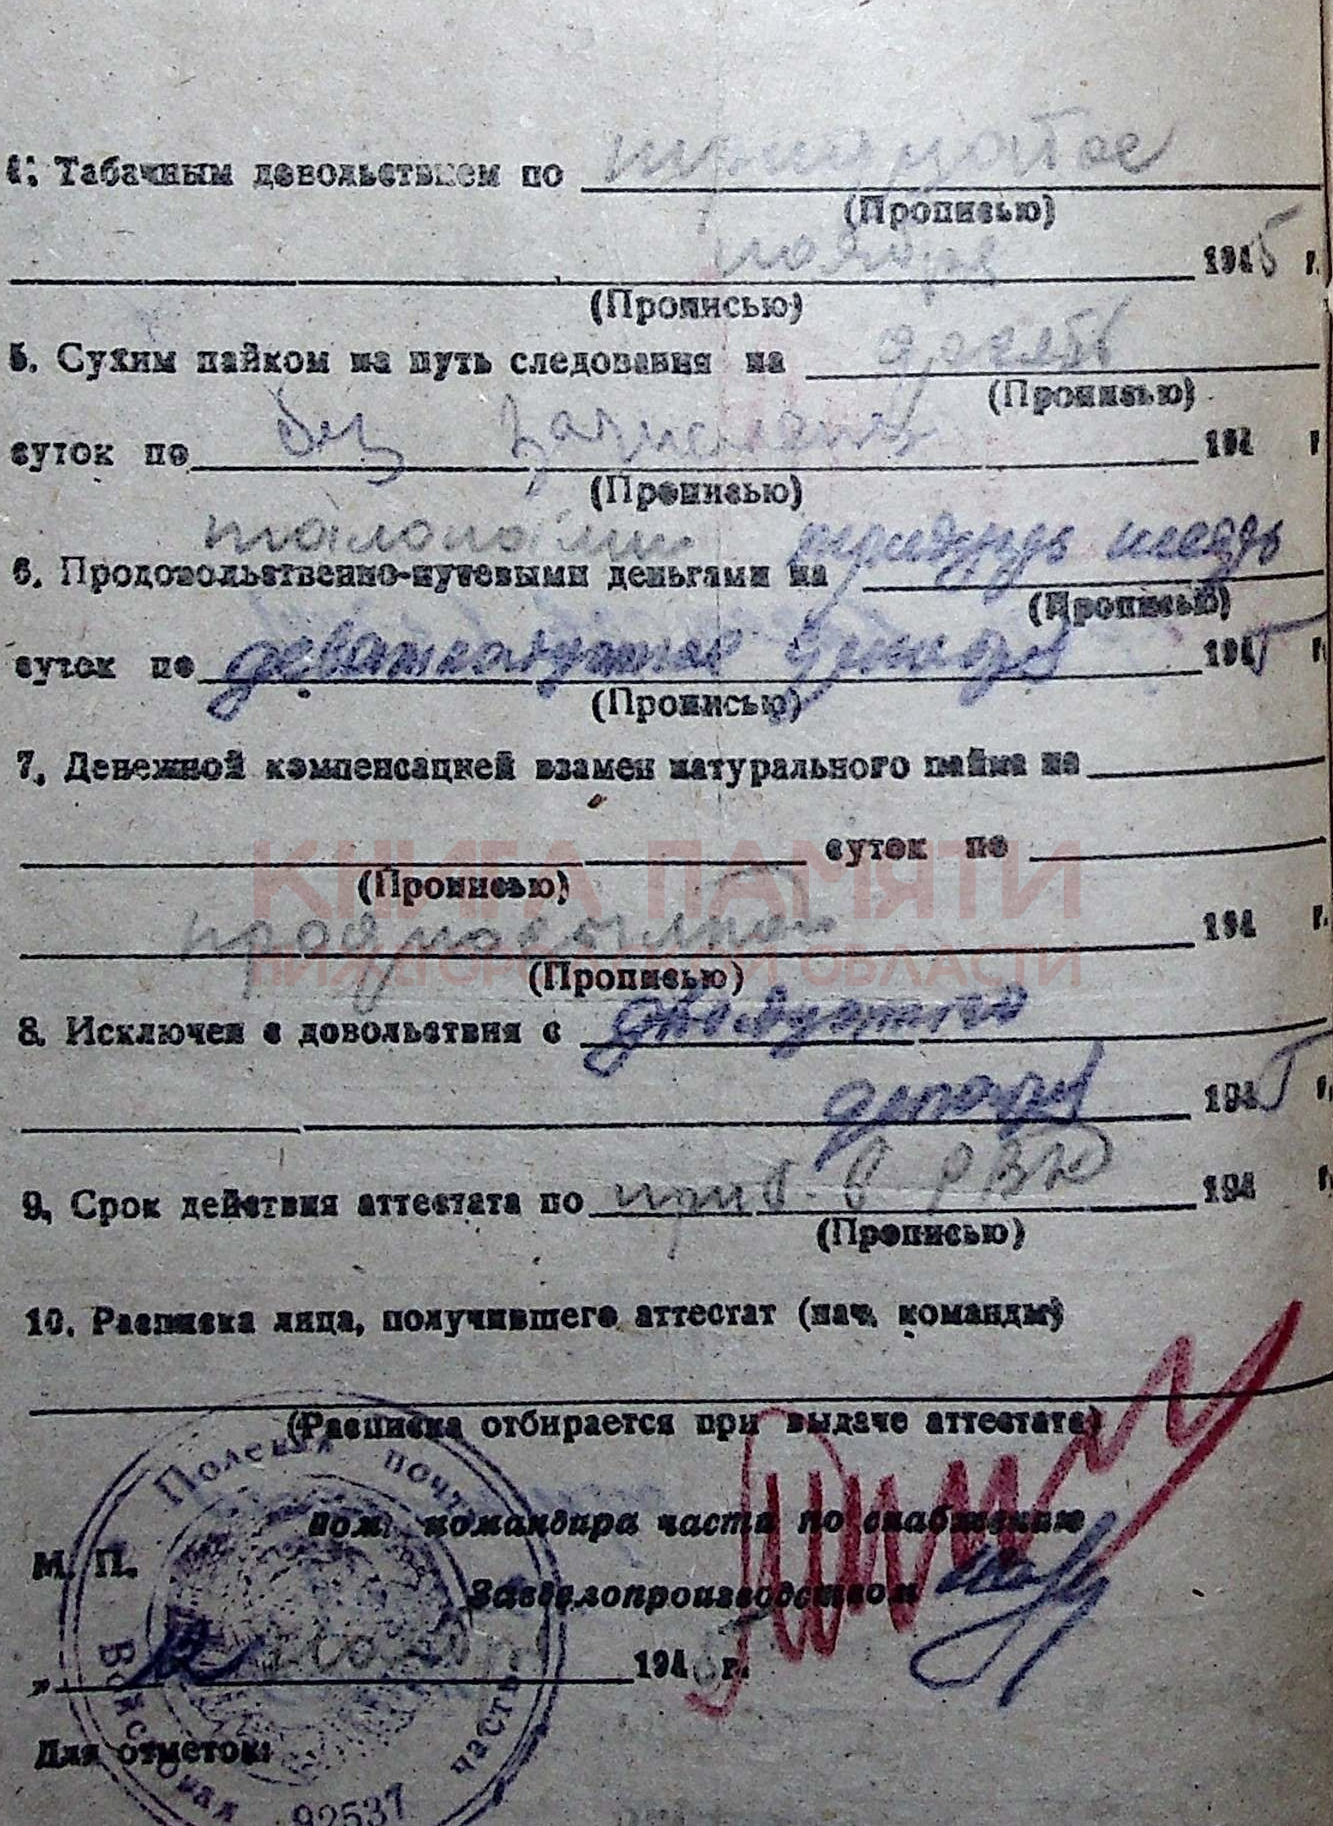 4. Табачным довольствием по тридцатое
(Прописью)
ноября 1945 г.
(Прописью)
5. Сухим пайком на путь следования на десять
(Прописью)
суток по без зачисления 194 г
(Прописью)
талонами
6. Продовольственно-путевыми деньгами на
(Прописью)
суток по девятнадцатое декабря 1945 г
(Прописью)
7. Денежной компенсацией взамен натурального пайка на
суток по
(Прописью)
КНИГА ПАМЯТИ
194 г.
НИЖЕГОРОДСКОЙ ОБЛАСТИ
(Прописью)
8. Исключен с довольствия с двадцатого
декабря 1945 г.
9. Срок действия аттестата по приб. в РВК 194 г.
(Прописью)
10. Расписка лица, получившего аттестат (нач. команды)
(Расписка отбирается при выдаче аттестата)
Полевая почта
Пом. командира части по снабжению
М. П.
Завделопроизводством
" 1945 г.
Войсковая часть
Для отметок:
92537